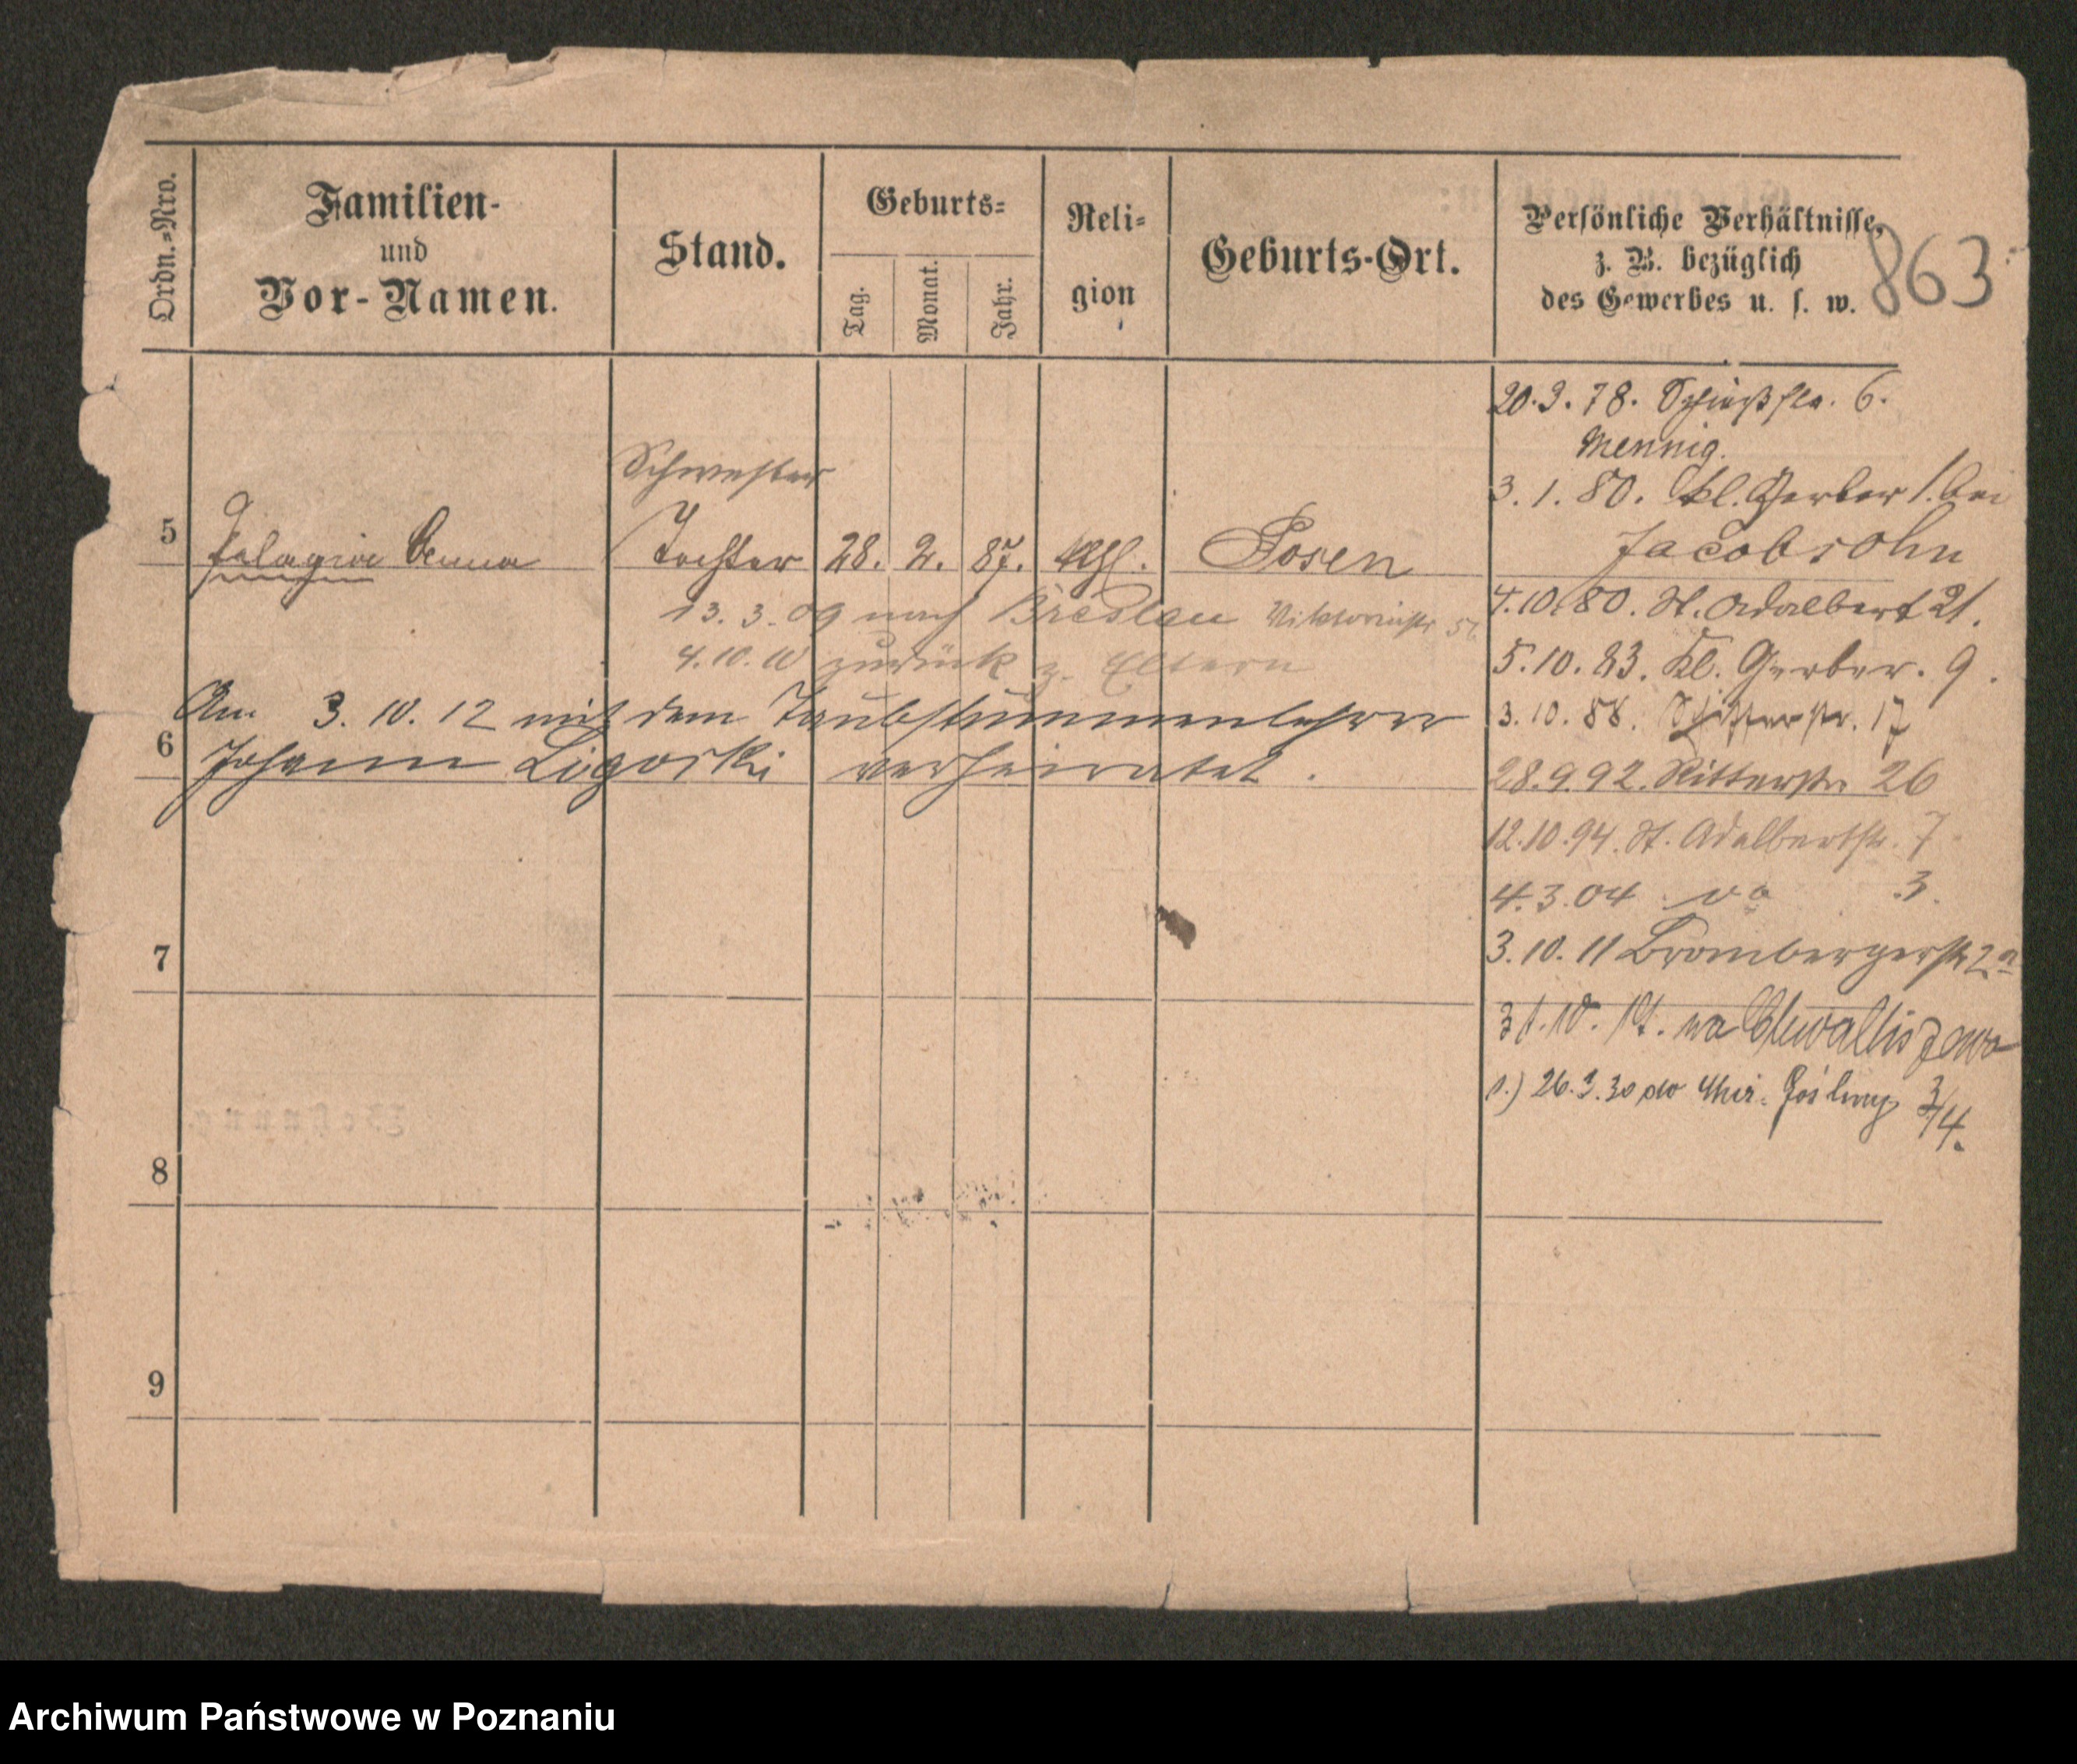 Ordn.=Nro.
Familien-
und
Vor-Namen.
Stand.
Geburts=
Tag.
Monat.
Jahr.
Reli=
gion
Geburts-Ort.
Persönliche Verhältnisse,
z. B. bezüglich
des Gewerbes u. s. w.
863
20.3.78. 6.
Mennig.
3.1.80. kl. Gerber 1. bei
Jacobsohn
4.10.80. St. Adalbert 21.
5.10.83. Kl. Gerber. 9.
3.10.88. 17
28.9.92. Ritterstr 26
12.10.94. St. Adalbertstr. 7
4.3.04 do 3.
3.10.11 Brombergerstr 2a
31.10. na Chwaliszewo
26.3.30 do 3/4.
Schwester
5 Pelagia Anna Tochter 28. 2. 87. kath. Posen
13.3.09 nach Breslau Viktoriastr
4.10.10 zurück z. Eltern
Am 3.10.12 mit dem Taubstummenlehrer
6 Johann Ligorski verheiratet.
7
8
9
Archiwum Państwowe w Poznaniu